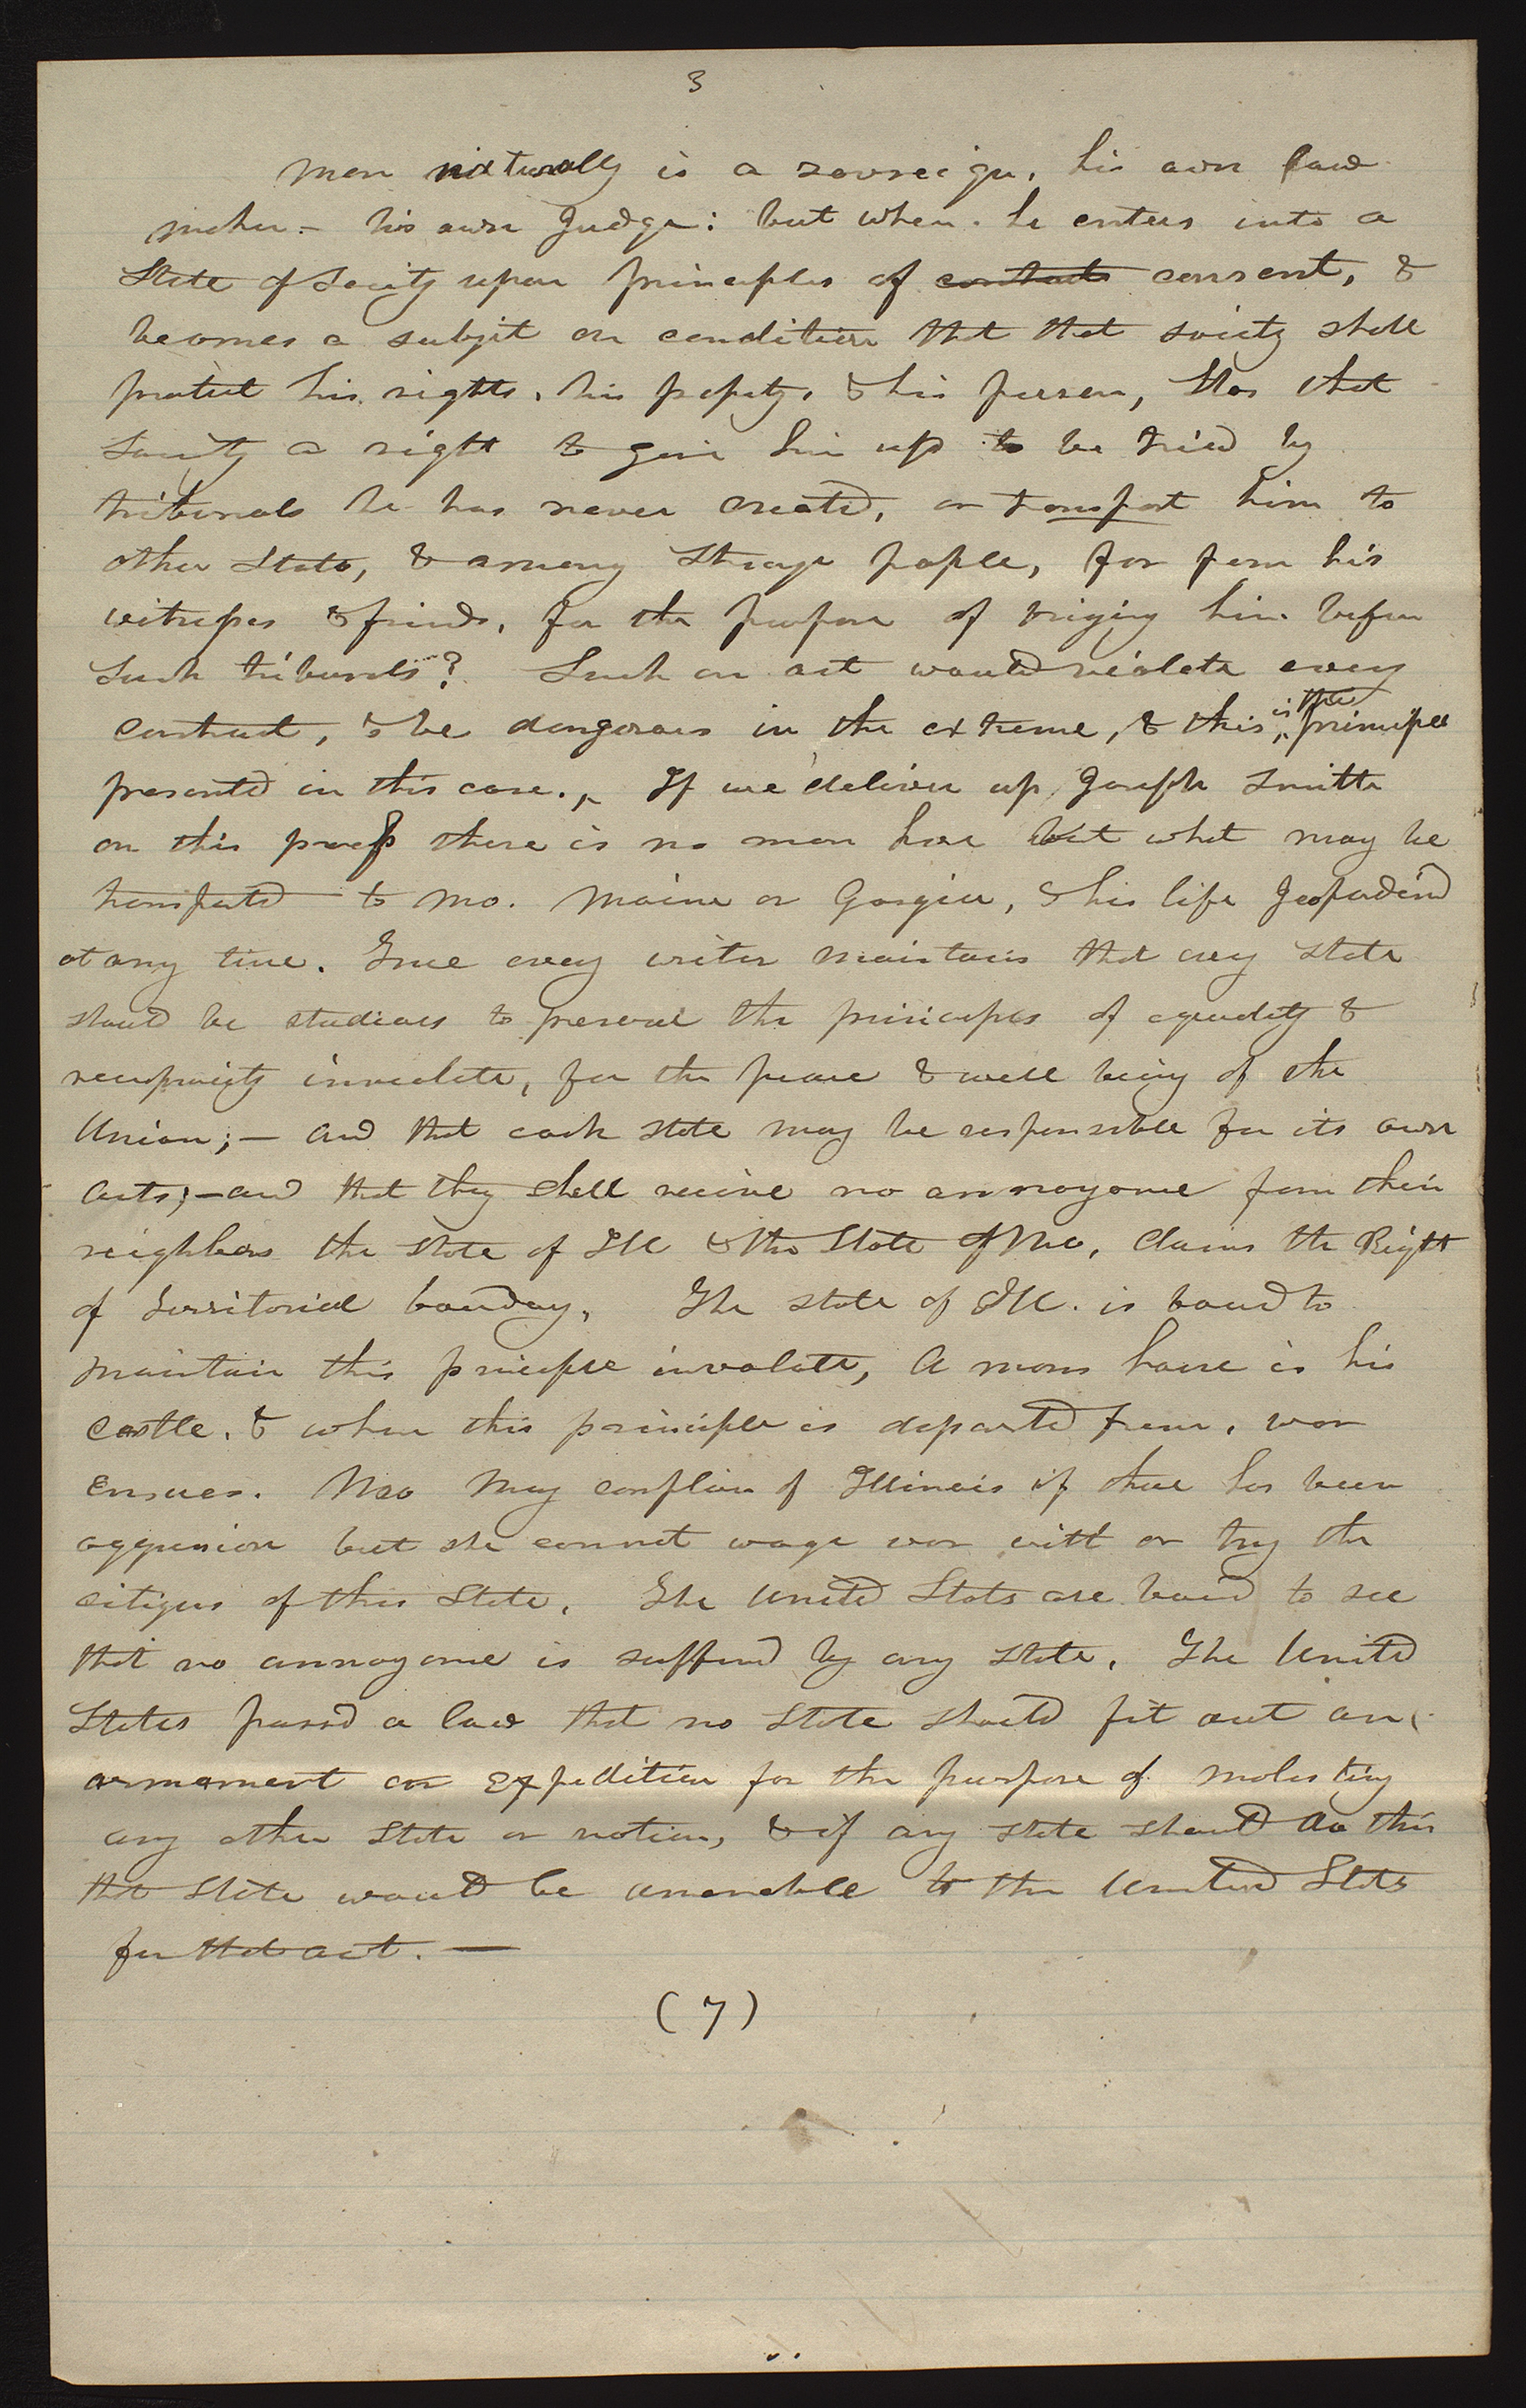 3
Man naturally is a sovreign, his own law
maker - his own Judge: but when he enters into a
State of Society upon principles of contracts consent, &
becomes a subjct on condition that that society shall
protect his rights, his propety, & his person, Has that
Society a right to give him up to be tried by
tribunals he has never created, or transport him to
other States, & among Strange people, far from his
witnesses & friends, for the purpose of bringing him before
Such tribunals? Such an act would violate every
contract, & be dangerous in the extreme, & this is the principle
presented in this case. If we deliver up Joseph Smith
on this process there is no man here but what may be
transported to Mo. Maine or Gorgia, & his life Jeopardized
at any time. True every writer maintains that every State
should be studious to preserve the principles of equality &
reciprocity inviolate, for the peace & well being of the
Union; — and that each State may be responsible for its own
acts; — and that they shall receive no annoyance from their
neighbors the State of Ill & the State of Mo, claims the Right
of Territorial boundary, The State of Ill. is bound to
maintain this principle inviolate, A mans house is his
castle, & when this principle is departed from, war
ensues. Mo may complain of Illinois if there has been
aggression but she cannot wage war with or try the
citizens of this State. The United States are bound to see
that no annoyance is suffered by any State, The United
States passed a law that no State should fit out an
armament or Expedition for the purpose of molesting
any other State or nation, & if any State should do this
that State would be amenable to the United States
for that act. —
(7)